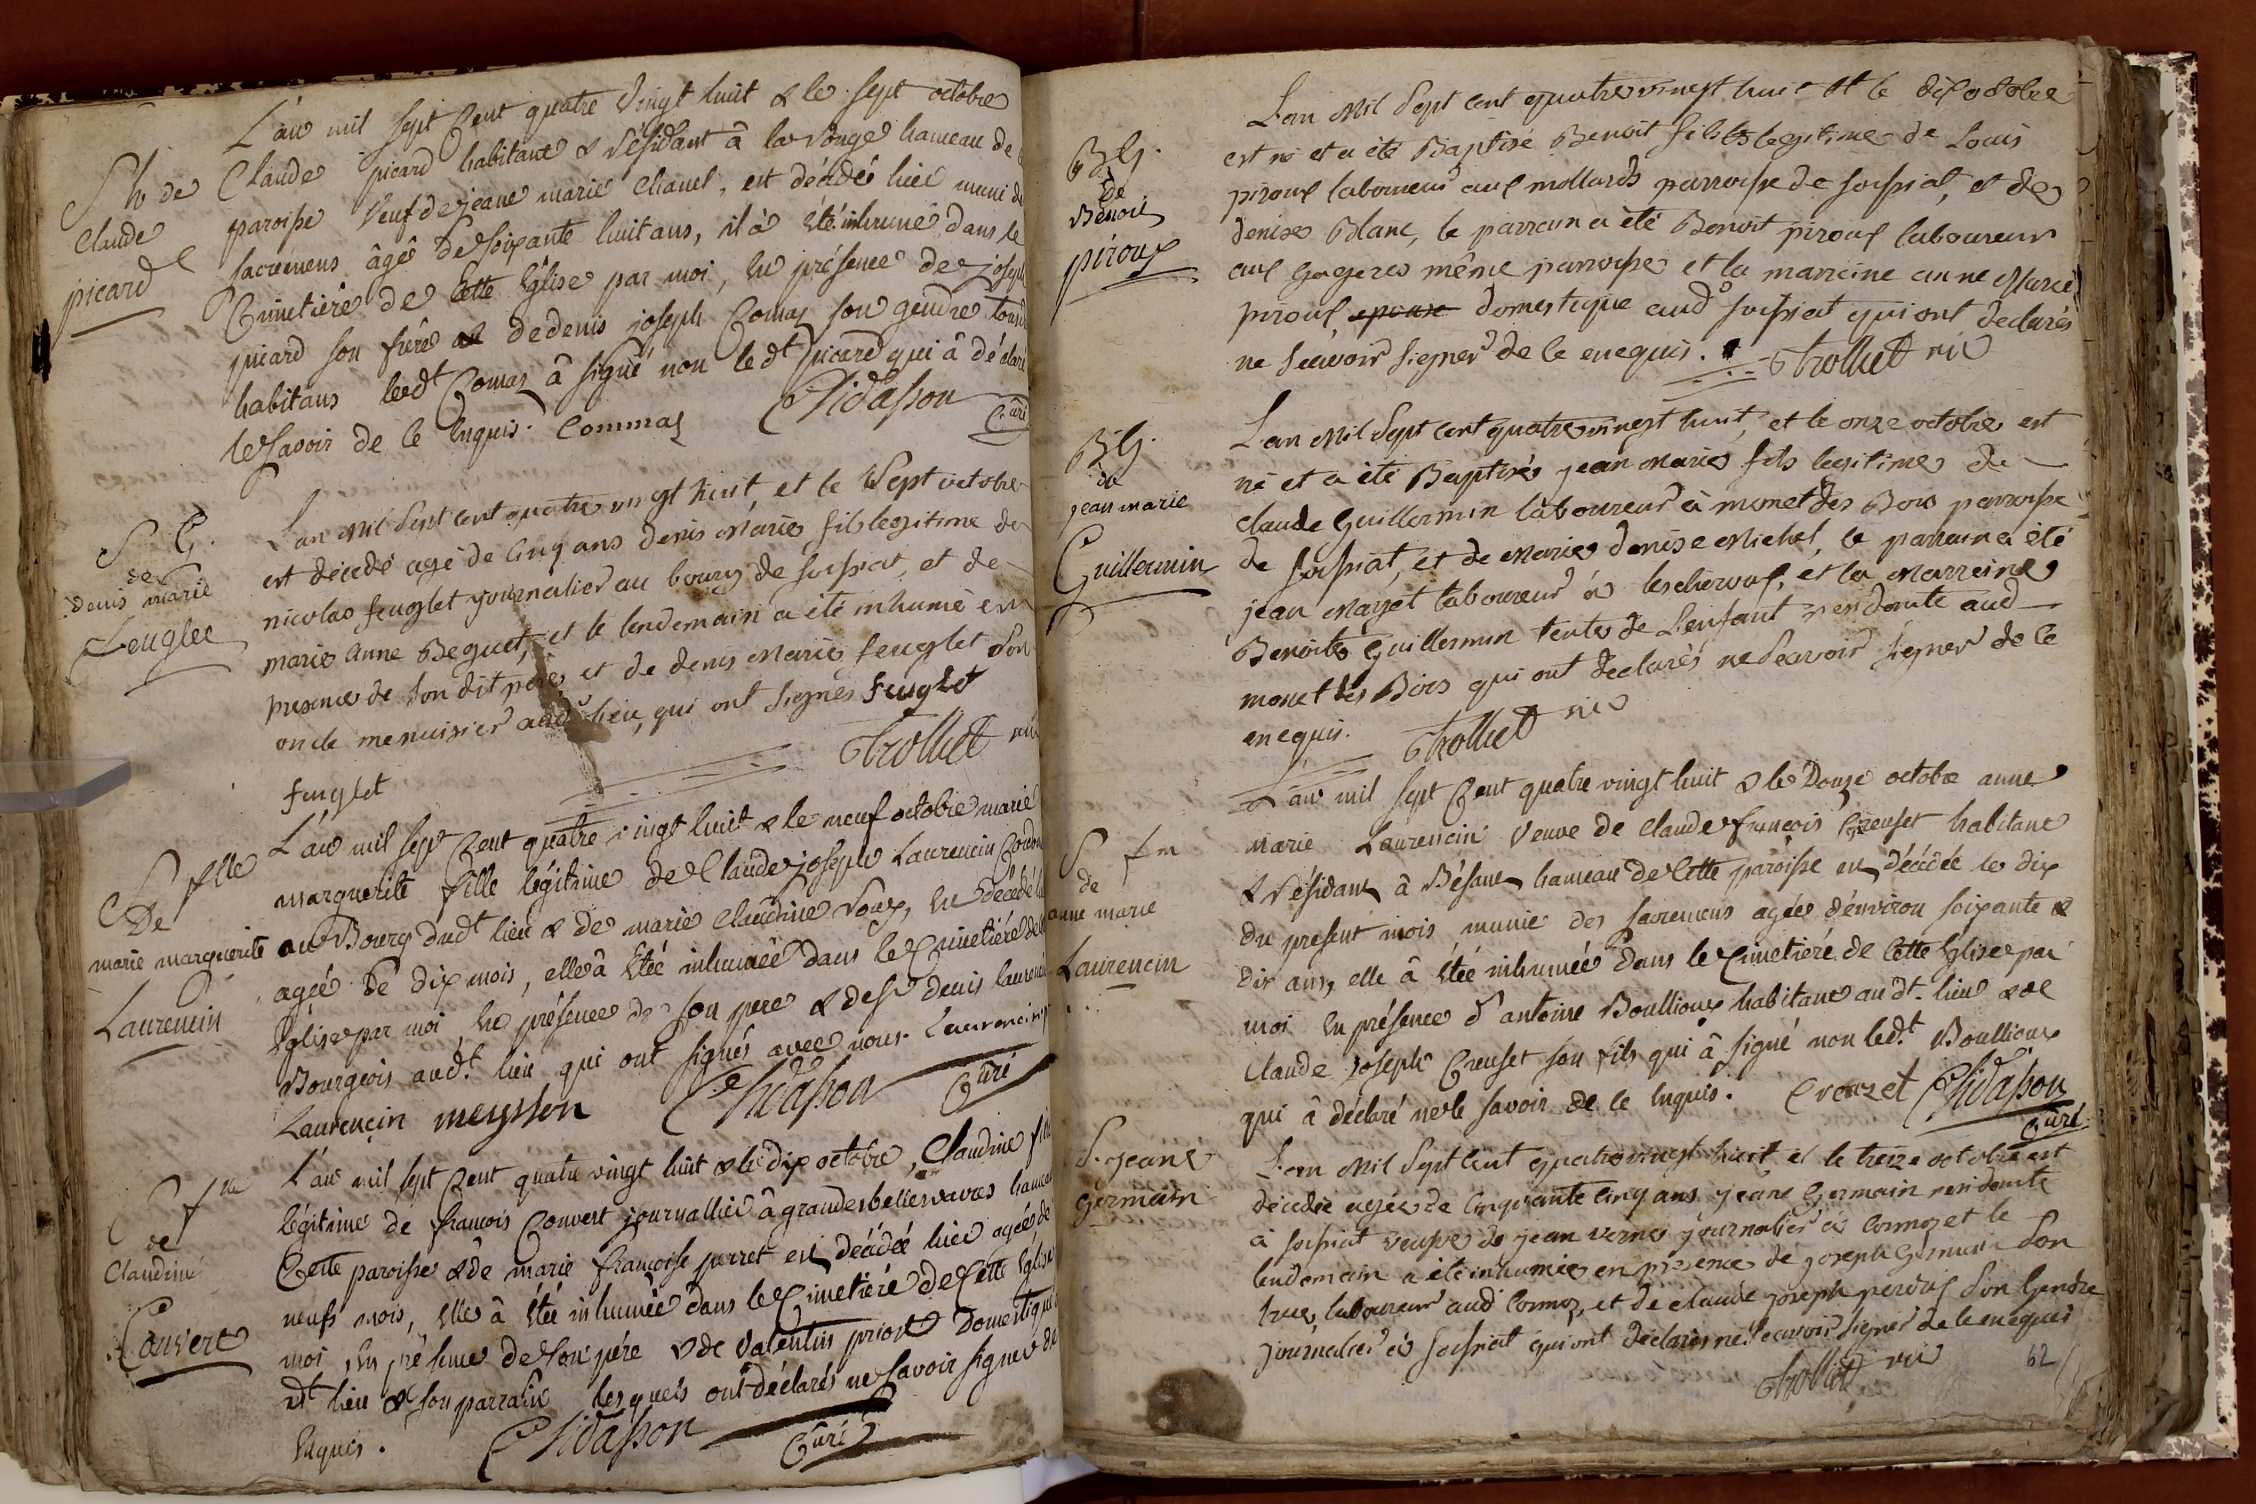 S h de
Claude
picard
L'an mil sept Cent quatre Vingt huit & le sept octobre
Claude picard habitant & résidant â la Vonge hameau de
paroisse Veuf de jeane marie Chanel, est décédé hier muni de
sacremens âgé de soixante huit ans, il â été inhumé dans le
Cimetière de Cette Eglise par moi, en présence de joseph
picard son frère & de denis joseph Comas son gendre tous
habitans ledt Comas â signé non ledt picard qui â déclaré
ne savoir de ce Enquis. Commas Chidasson Curé
S G.
de
denis marie
feuglet
L'an Mil Sept cent quatre vingt huit, et le Sept octobre
est décédé agé de Cinq ans denis Marie fils legitime de
nicolas feuglet journalier au bourg de forssiat, et de
marie anne Beguet, et le lendemain a été inhumé en
presence de son dit pere, et de denis Marie feuglet Son
oncle menuisier audt lieu, qui ont signés feuglet
feuglet Trolliet vic
S flle
De
marie marguerite
Laurencin
L'an mil sept Cent quatre vingt huit & le neuf octobre marie
marguerite fille légitime de Claude joseph Laurencin
au Bourg dudt lieu & de marie Claudine Roux, est décédée
agée de dix mois, elle â Etée inhumée dans le Cimetière de
Eglise par moi En présence de son pere & de sr denis laurencin
Bourgeois audt. lieu qui ont signés avec nous. Laurencin
Laurencin meysson Chidasson Curé
S fme
de
Claudine
Convert
L'an mil sept Cent quatre vingt huit & le dix octobre, Claudine fille
légitime de francois Convert journallier â grandes bellesvavres hameau
Cette paroisse & de marie françoise perret est décédée hier agée de
neufs mois, Elle â Etée inhumée dans le Cimetière de Cette Eglise
moi En présence de son père & de Valentin priost Domestique
dt lieu & son parrain lesquels ont déclarés ne savoir signer de
Enquis. Chidasson Curé
B G.
de
Benoit
piroux
L'an Mil Sept cent quatre vingt huit et le dix octobre
est né et a été Baptisé Benoit fils legitime de Louis
piroux laboureur aux mollards parroisse de forssiat, et de
denise Blanc, le parrain a été Benoit piroux laboureur
aux gageres même parroisse et la marreine anne Marie
piroux epouse domestique audt forssiat qui ont declarés
ne Scavoir Signer de ce enequis. Trolliet vic
B G.
de
jean marie
Guillermin
L'an Mil Sept cent quatre vingt huit, et le onze octobre est
né et a été Baptisé jean Marie fils legitime de
Claude Guillermin laboureur à monet des Bois parroisse
de forssiat, et de Marie denise Michel, le parrain a été
jean Mayet laboureur à lescheroux, et la Marreine
Benoite Guillermin tente de L'enfant residente audt
monet des Bois qui ont declarés ne Scavoir signer de ce
enequis. Trolliet vic
S fm
de
anne marie
Laurencin
L'an mil sept Cent quatre vingt huit & le Douze octobre anne
Marie Laurencin Veuve de Claude françois Creuset habitant
& résidant â Bésane hameau de Cette paroisse est décédée le dix
du present mois munie des sacremens agée d'environ soixante &
dix ans, elle â Etée inhumée dans le Cimetière de Cette Eglise par
moi En présence d'antoine Boullioux habitant audt. lieu & de
Claude Joseph Creuset son fils qui â signé non ledt Boullioux
qui â déclaré ne le savoir de ce Enquis. Creuzet Chidasson
Curé
S. jeane
Germain
L'an Mil Sept cent quatre vingt huit et le treize octobre est
décedée agée de Cinquante Cinq ans jeane Germain residente
à forssiat veusve de jean vernes journalier à Cormoz et le
lendemain a été inhumée en presence de joseph Germain Son
frere laboureur audt Cormoz, et de claude joseph perdrix Son Gendre
journalier à forssiat qui ont déclarés ne Scavoir signer de ce enequis
Trolliet vic
62